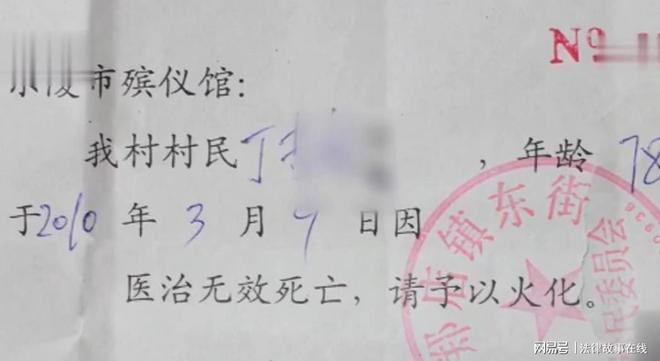 №
市殡仪馆：
我村村民丁 ，年龄 78
于2010年3月9日因
医治无效死亡，请予以火化。
郑店镇东街
民委员会
网易号 | 法律故事在线